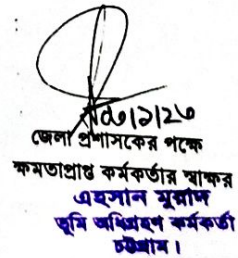 জেলা প্রশাসকের পক্ষে
ক্ষমতাপ্রাপ্ত কর্মকর্তার স্বাক্ষর
এহসান মুরাদ
ভূমি অধিগ্রহণ কর্মকর্তা
চট্টগ্রাম।